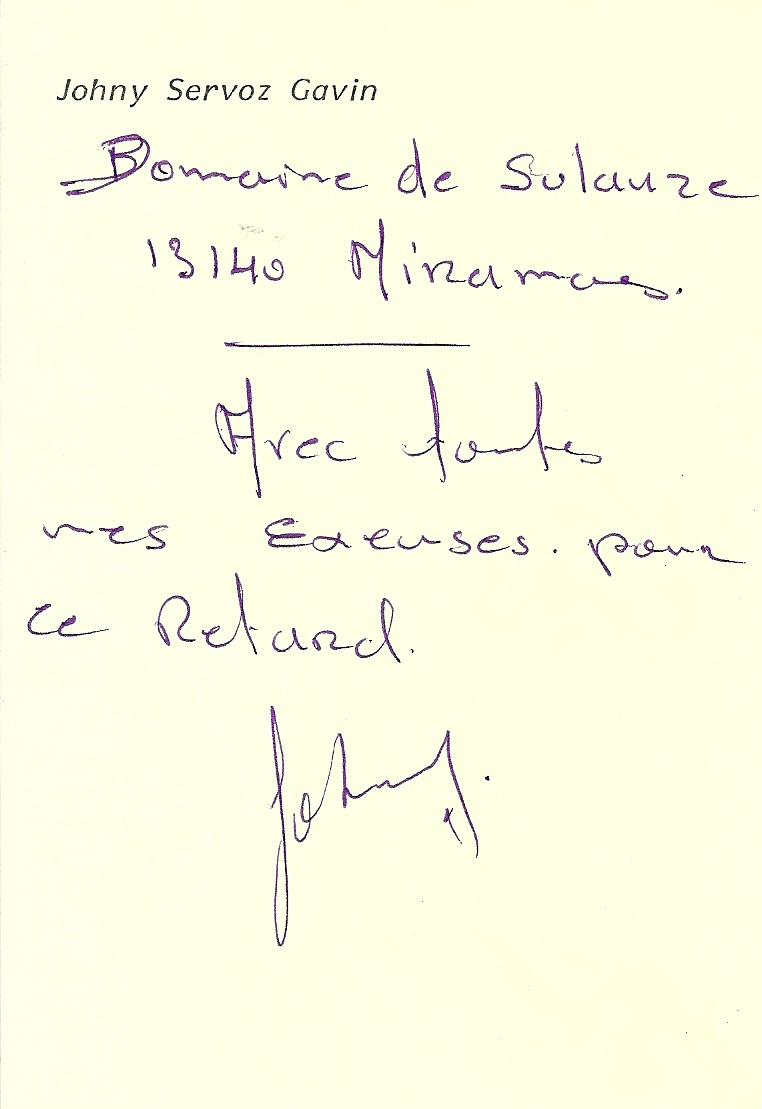 Johny Servoz Gavin
Domaine de Sulauze
13140 Miramas.
Avec toutes
mes Excuses. pour
ce Retard.
Johny.